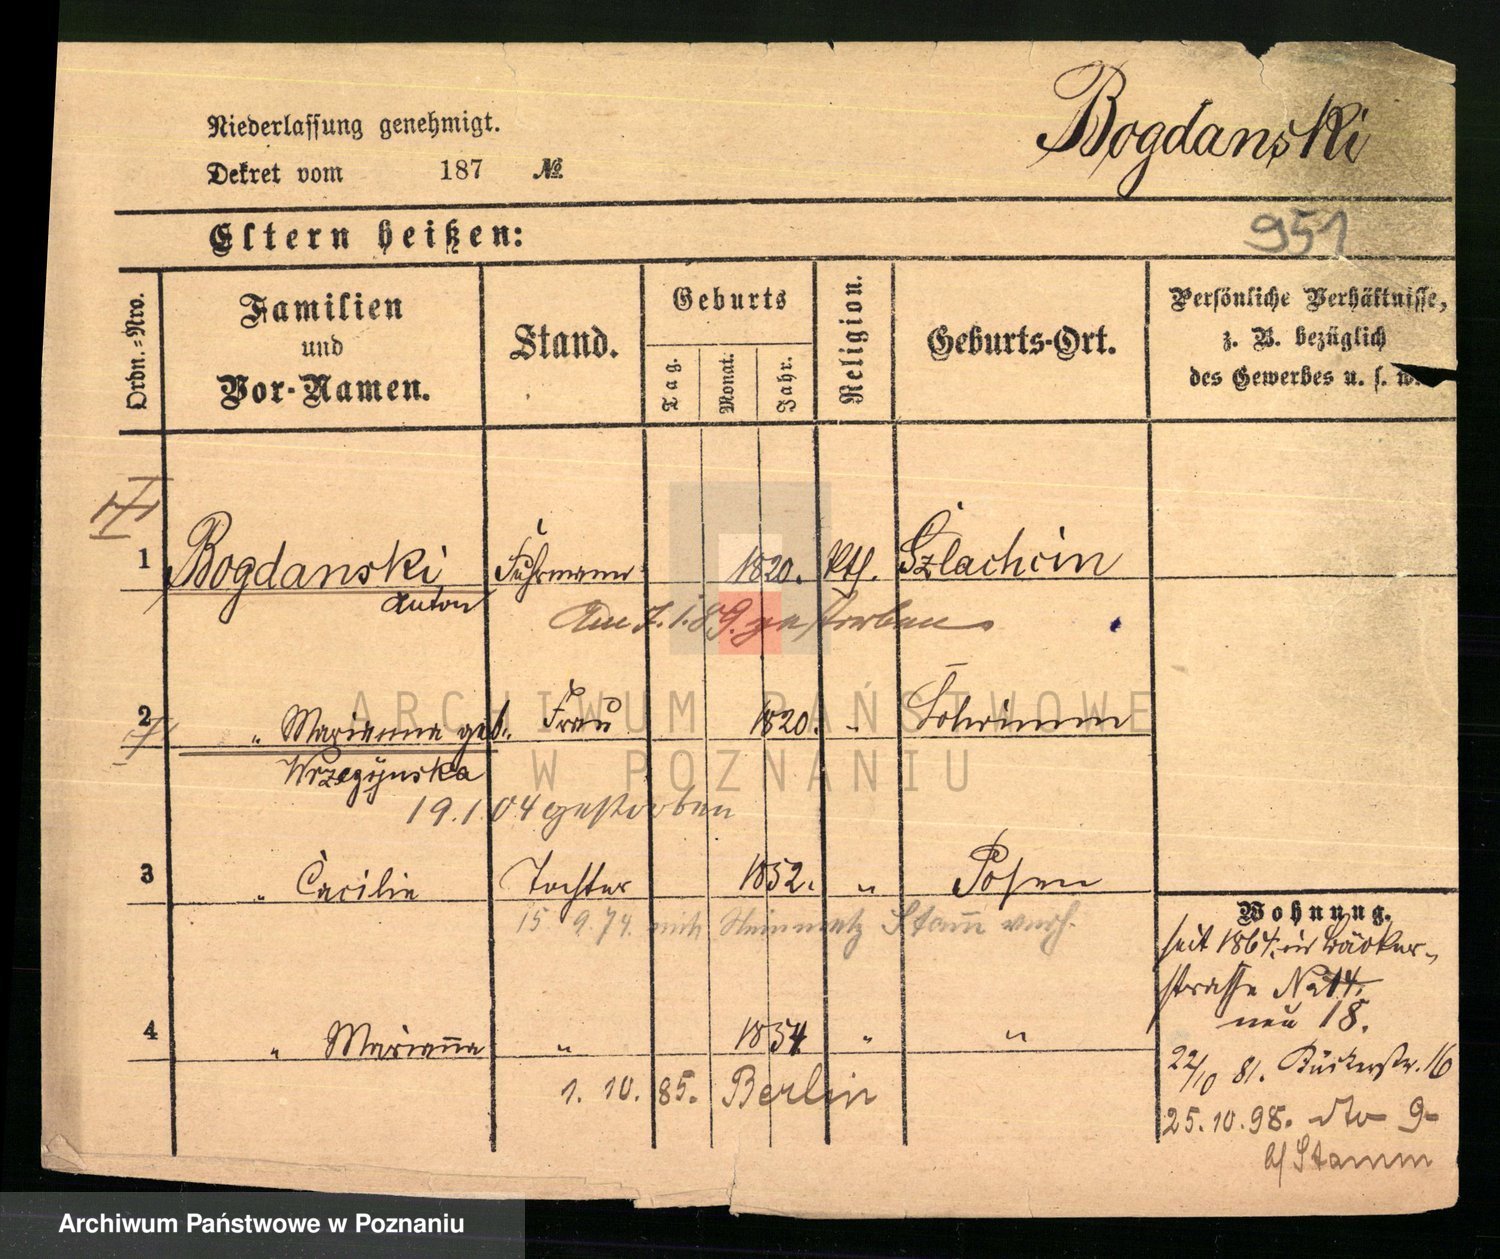 Niederlassung genehmigt.
Dekret vom 187 №
Bogdanski
951
Eltern heißen:
Ordn.-Nro.
Familien
und
Vor-Namen.
Stand.
Geburts
Tag.
Monat.
Jahr.
Religion.
Geburts-Ort.
Persönliche Verhältnisse,
z. B. bezüglich
des Gewerbes u. s. w.
1 Bogdanski Fuhrmann 1820. Kth. Szlachcin
Anton
Am 7.1.89. gestorben
2 " Marianna geb. Frau 1820. " Schrimm
Wrzezynska
19.1.04 gestorben
3 " Cäcilie Tochter 1852. " Posen
15 9.74. mit Steinmetz Stam̄ verh.
4 " Marian̄a " 1854 " "
1. 10. 85. Berlin
Wohnung.
seit 1864. in Bäcker-
strasse No 14.
neu 18.
22/10 81. Bäckerstr. 16
25.10.98. dto 9
b/ Stamm
ARCHIWUM PAŃSTWOWE
W POZNANIU
Archiwum Państwowe w Poznaniu